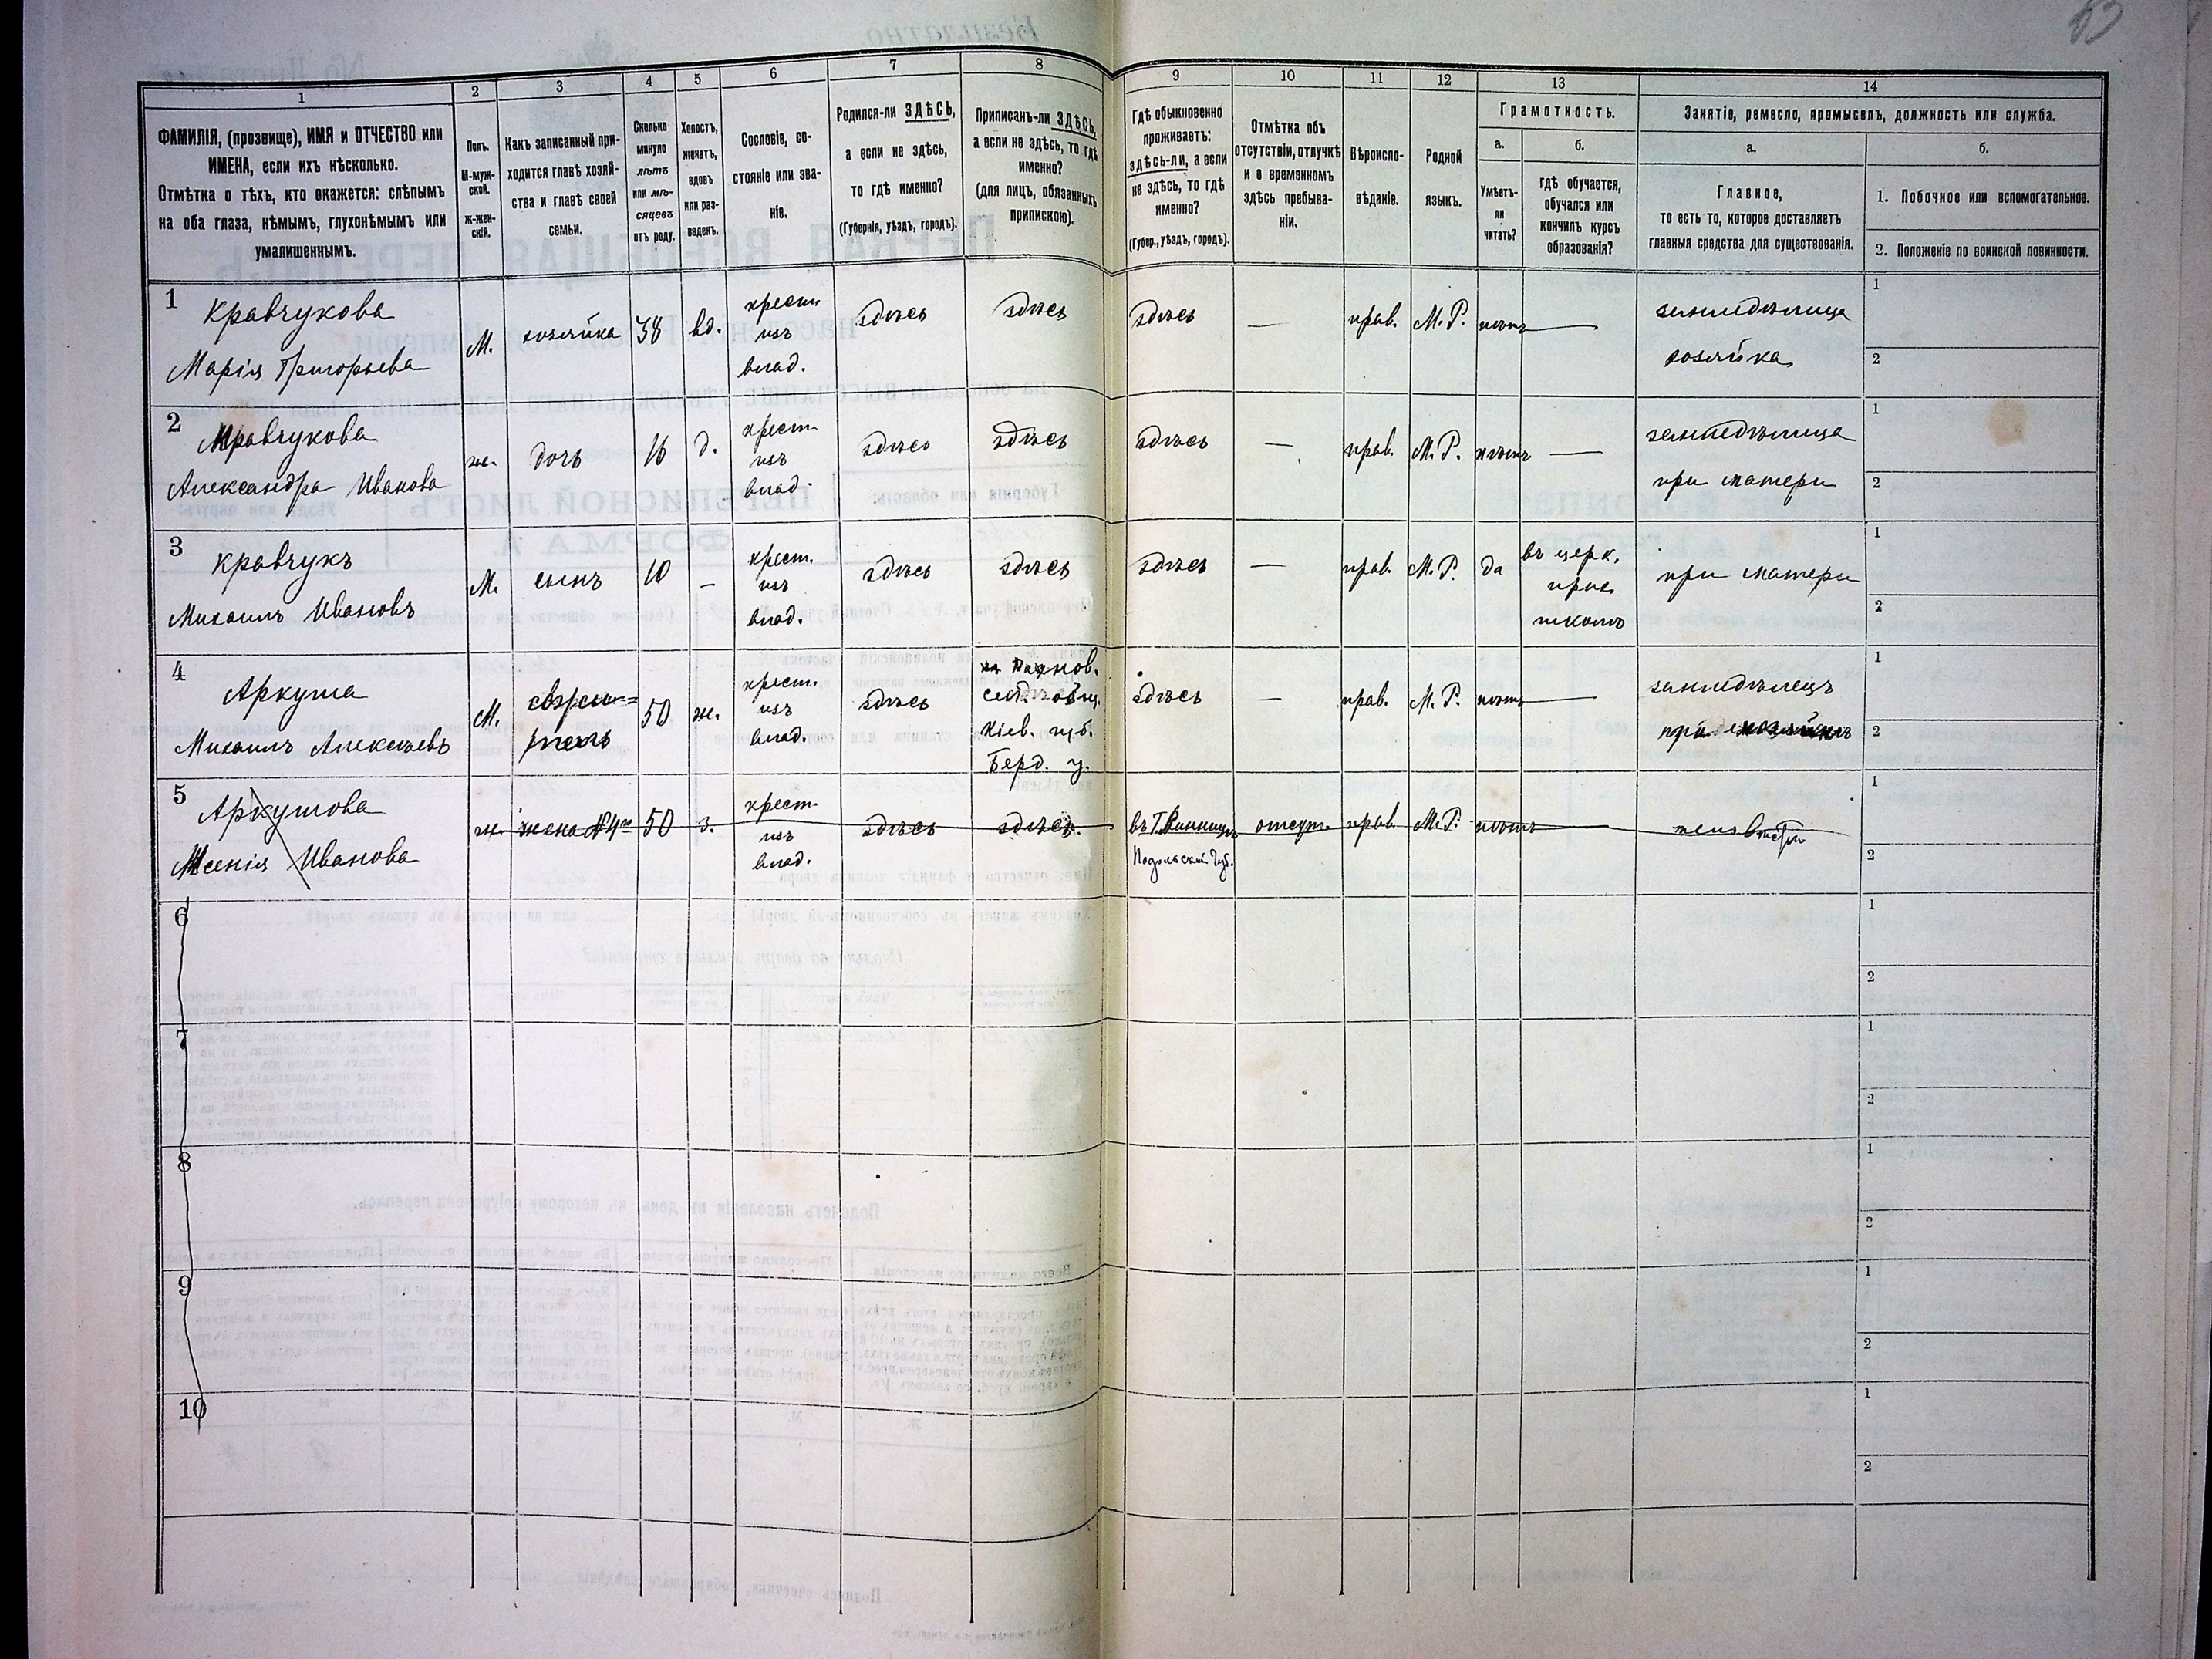 1
2
3
4
5
6
7
8
9
10
11
12
13
14
ФАМИЛІЯ, (прозвище), ИМЯ и ОТЧЕСТВО или
ИМЕНА, если ихъ нѣсколько.
Отмѣтка о тѣхъ, кто окажется: слѣпымъ
на оба глаза, нѣмымъ, глухонѣмымъ или
умалишеннымъ.
Полъ.
М-муж-
ской.
ж-жен-
скій.
Какъ записанный при-
ходится главѣ хозяй-
ства и главѣ своей
семьи.
Сколько
минуло
лѣтъ
или мѣ-
сяцевъ
отъ роду.
Холостъ,
женатъ,
вдовъ
или раз-
веденъ.
Сословіе, со-
стояніе или зва-
ніе.
Родился-ли ЗДѢСЬ,
а если не здѣсь,
то гдѣ именно?
(Губернія, уѣздъ, городъ).
Приписанъ-ли ЗДѢСЬ,
а если не здѣсь, то гдѣ
именно?
(для лицъ, обязанныхъ
припискою).
Гдѣ обыкновенно
проживаетъ:
здѣсь-ли, а если
не здѣсь, то гдѣ
именно?
(Губер., уѣздъ, городъ).
Отмѣтка объ
отсутствіи, отлучкѣ
и о временномъ
здѣсь пребыва-
ніи.
Вѣроиспо-
вѣданіе.
Родной
языкъ.
Грамотность.
а.
Умѣетъ-
ли
читать?
б.
гдѣ обучается,
обучался или
кончилъ курсъ
образованія?
Занятіе, ремесло, промыселъ, должность или служба.
а.
Главное,
то есть то, которое доставляетъ
главныя средства для существованія.
б.
1. Побочное или вспомогательное.
2. Положеніе по воинской повинности.
1
Кравчукова
Марія Григорьева
М.
хозяйка
38
вд.
крест.
изъ
влад.
здѣсь
здѣсь
здѣсь
—
прав.
М. Р.
нѣтъ
—
земледѣлица
хозяйка
1
2
2
Кравчукова
Александра Иванова
ж.
дочь
16
д.
крест.
изъ
влад.
здѣсь
здѣсь
здѣсь
—
прав.
М. Р.
нѣтъ
—
земледѣлица
при матери
1
2
3
Кравчукъ
Михаилъ Ивановъ
М.
сынъ
10
—
крест.
изъ
влад.
здѣсь
здѣсь
здѣсь
—
прав.
М. Р.
да
въ церк.
прих.
школѣ
при матери
1
2
4
Аркуша
Михаилъ Алексѣевъ
М.
50
ж.
крест.
изъ
влад.
здѣсь
Кіев. губ.
Берд. у.
здѣсь
—
прав.
М. Р.
нѣтъ
—
земледѣлецъ
при
1
2
5
Аркушова
Ксенія Иванова
ж.
жена №4го
50
з.
крест.
изъ
влад.
здѣсь
здѣсь.
въ Г. Винницѣ
Подольской Губ.
отсут.
прав.
М. Р.
нѣтъ
—
1
2
6
1
2
7
1
2
8
1
2
9
1
2
10
1
2